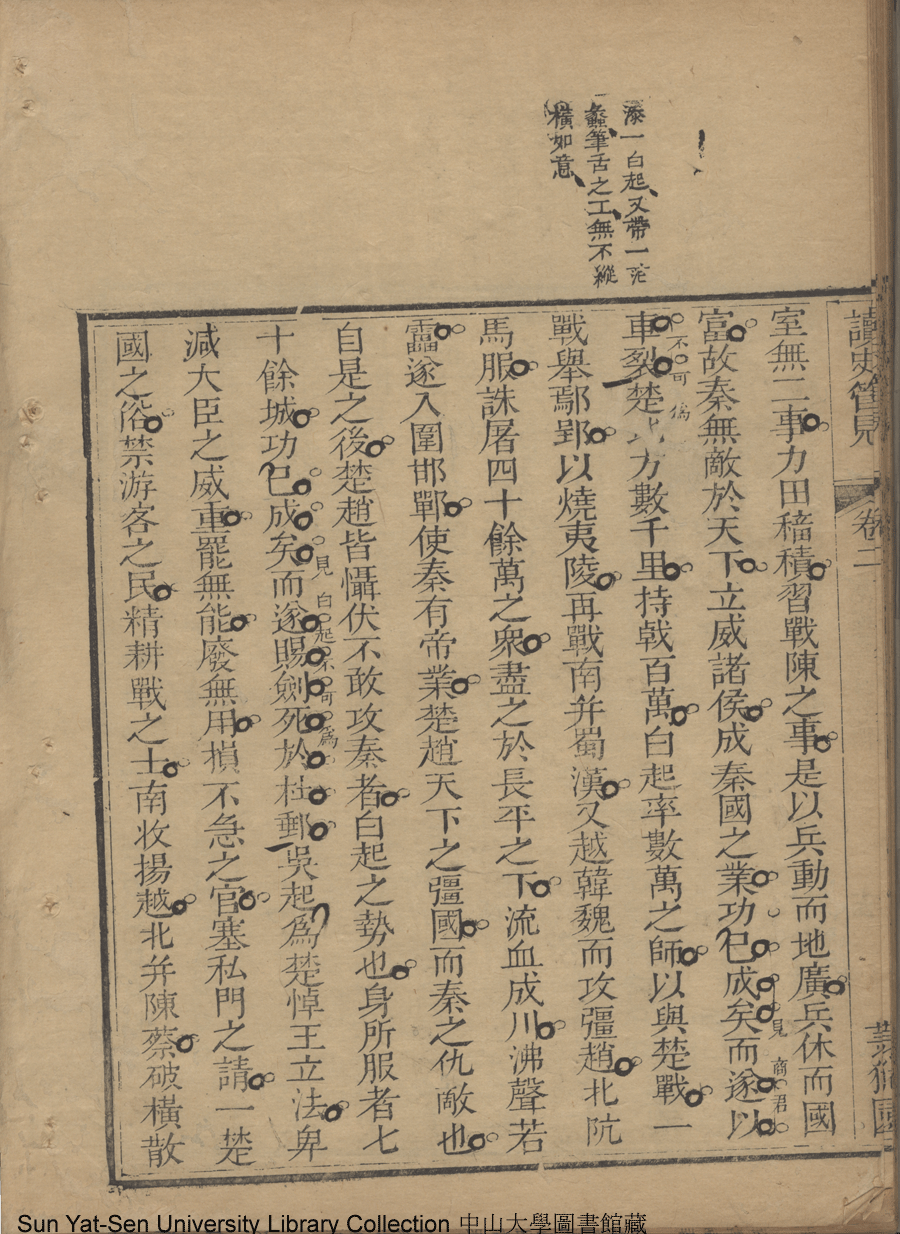 添一白起又帶一
蠡筆舌之工無不縱
橫如意
讀史管見
卷二
室無二事力田稸積習戰陳之事是以兵動而地廣兵休而國
富故秦無敵於天下立威諸侯成秦國之業功已成矣而遂以
見商君
車裂楚地方數千里持戟百萬白起率數萬之師以與楚戰一
不可為
戰舉鄢郢以燒夷陵再戰南并蜀漢又越韓魏而攻彊趙北阬
馬服誅屠四十餘萬之衆盡之於長平之下流血成川沸聲若
靁遂入圍邯鄲使秦有帝業楚趙天下之彊國而秦之仇敵也
自是之後楚趙皆懾伏不敢攻秦者白起之勢也身所服者七
十餘城功已成矣而遂賜劍死於杜郵吳起爲楚悼王立法卑
見白起不可爲
減大臣之威重罷無能廢無用損不急之官塞私門之請一楚
國之俗禁游客之民精耕戰之士南收揚越北并陳蔡破橫散
Sun Yat-Sen University Library Collection 中山大學圖書館藏